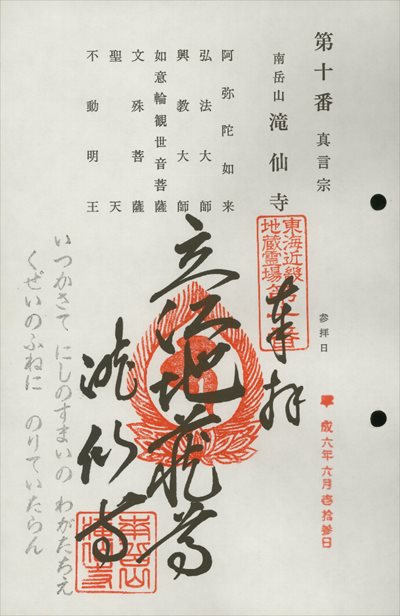 第十番 真言宗
南岳山 滝仙寺
阿弥陀如来
弘法大師
興教大師
如意輪観世音菩薩
文殊菩薩
聖天
不動明王
東海近畿
地蔵霊場第十番
奉拝
参拝日
平成六年六月壱拾参日
立江地蔵尊
滝仙寺
南岳山
滝仙寺
いつかさて にしのすまいの わがたちえ
くぜいのふねに のりていたらん